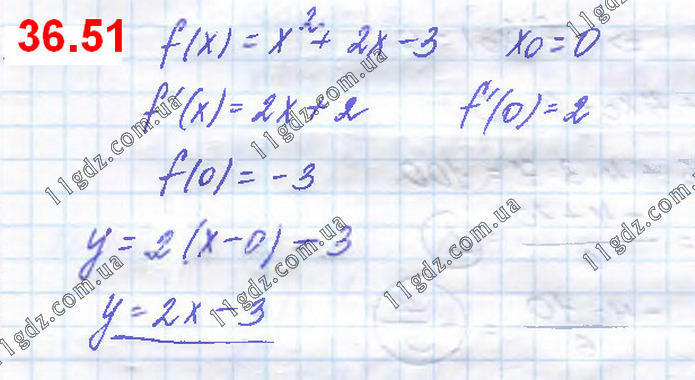 36.51
f(x) = x² + 2x - 3 x₀ = 0
f'(x) = 2x + 2 f'(0) = 2
f(0) = -3
y = 2(x-0) - 3
y = 2x - 3
11gdz.com.ua
11gdz.com.ua
11gdz.com.ua
11gdz.com.ua
11gdz.com.ua
11gdz.com.ua
11gdz.com.ua
11gdz.com.ua